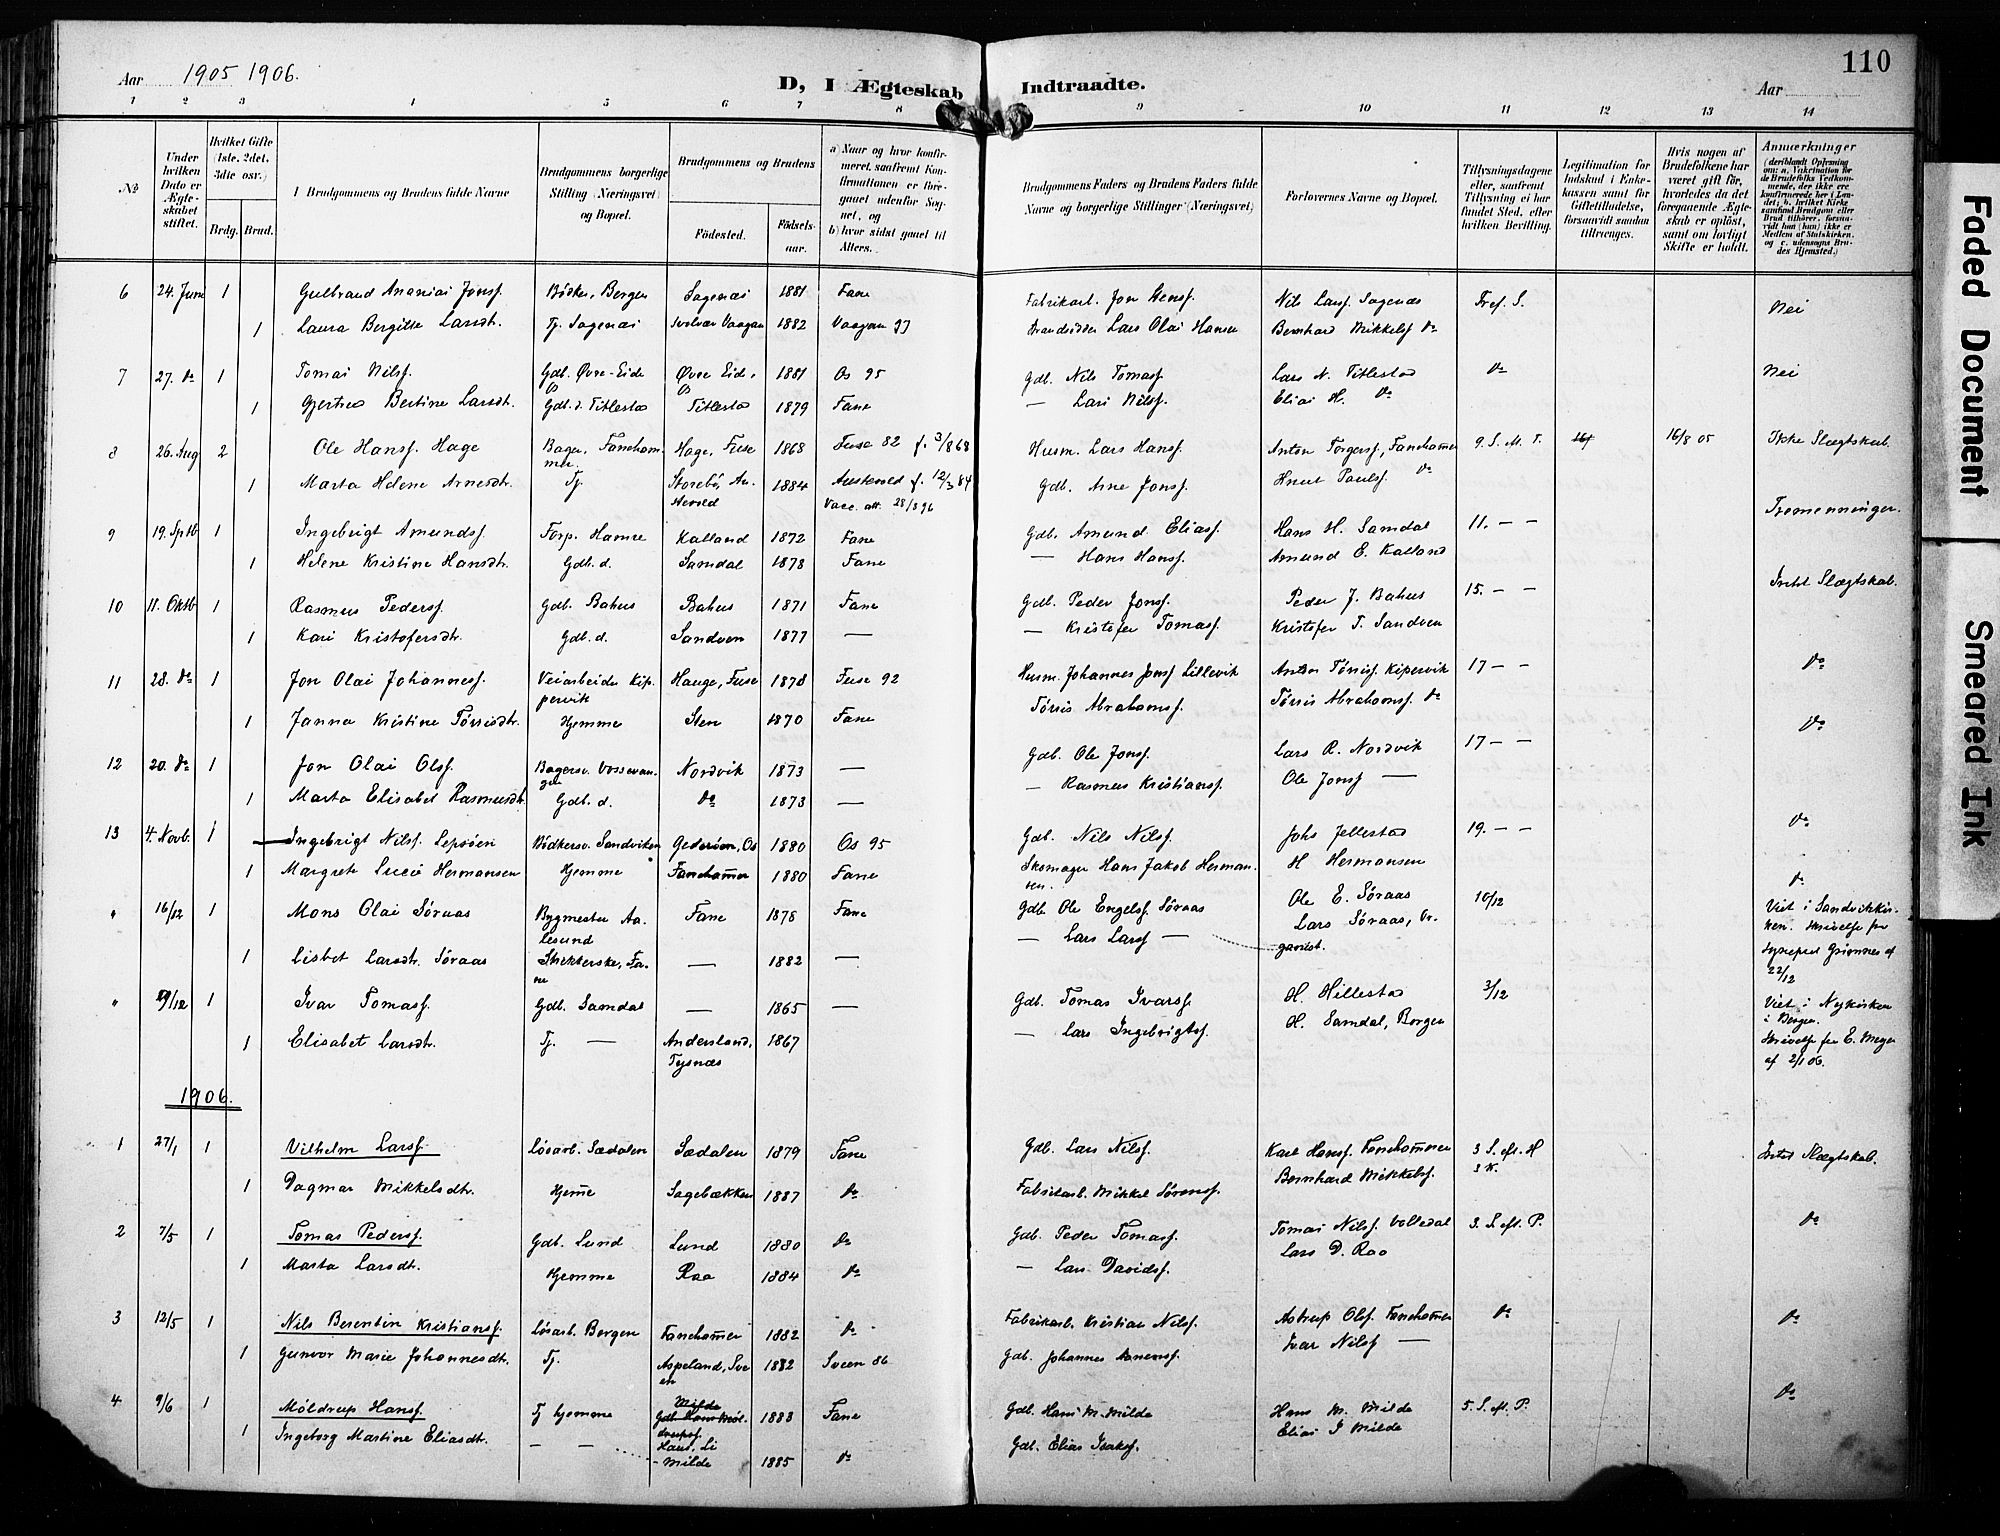 110
Aar 1905 1906.
D, I Ægteskab Indtraadte.
Aar
1 2 3 4 5 6 7 8 9 10 11 12 13 14
No
Under hvilken Dato er Ægteskabet stiftet.
Hvilket Gifte (1ste, 2det, 3die osv.)
Brdg. Brud.
Brudgommens og Brudens fulde Navne
Brudgommens borgerlige Stilling (Næringsvei) og Bopæl.
Brudgommens og Brudens
Fødested.
Fødselsaar.
a) Naar og hvor konfirmeret, saafremt Konfirmationen er foregaaet udenfor Sognet, og
b) hvor sidst gaaet til Alters.
Brudgommens Faders og Brudens Faders fulde Navne og borgerlige Stillinger (Næringsvei)
Forlovernes Navne og Bopæl.
Tillysningsdagene eller, saafremt Tillysning ei har fundet Sted, efter hvilken Bevilling.
Legitimation for Indskud i Enkekassen samt for Giftetilladelse, forsaavidt saadan tiltrænges.
Hvis nogen af Brudefolkene har været gift før, hvorledes da det foregaaende Ægteskab er opløst, samt om lovligt Skifte er holdt.
Anmærkninger
6 24. Juni 1 Gulbrand Ananias Jonsf. Bødker, Bergen Sagenæs 1881 Fane Fabrikarb. Jon Stensf. Nils Larsf. Sagenæs Tref. S. Nei
1 Laura Bergitte Larsdt. Tj. Sagenæs Svolvær Vaagan 1882 Vaagan 97 Lars Olai Hansen Bernhard Mikkelsf do
7 27. do 1 Tomas Nilsf. Gdb. Øvre-Eide Os Øvre Eide, Os 1881 Os 95 Gdb. Nils Tomasf. Lars N. Titlestad do Nei
1 Gjertine Bertine Larsdt. Gdb. d. Titlestad Titlestad 1879 Fane — Lars Nilsf. Elias H. do
8 26. Aug 2 Ole Hansf. Hage Bager, Fanehammer. Hage, Fuse 1868 Fuse 82 f. 3/8 68 Husm. Lars Hansf. Anton Torgersf, Fanehamer 9. S. M. T. 16/8 05 Ikke Slægtskab.
1 Marta Helene Arnesdt. Tj. Storebø, Austevold 1884 Austevold f. 12/3 84 Gdb. Arne Jonsf. Knut Paulsf. do
Vacc. att. 28/8 96
9 19. Sptb 1 Ingebrigt Amundsf. Forp. Hamre Kalland 1872 Fane Gdb. Amund Eliasf. Hans H. Samdal 11. — — Tremenninger.
1 Helene Kristine Hansdt. Gdb. d. Samdal 1878 Fane — Hans Hansf. Amund E. Kalland
10 11. Oktb 1 Rasmus Pedersf. Gdb. Bahus Bahus 1871 Fane Gdb. Peder Jonsf. Peder J. Bahus 15. — — Intet Slægtskab.
1 Kari Kristofersdt. Gdb. d. Sandven 1877 — — Kristofer Tomasf. Kristofer T. Sandven
11 28. do 1 Jon Olai Johannesf. Veiarbeider Kippervik Hauge, Fuse 1878 Fuse 92 Husm. Johannes Jonsf Lillevik Anton Tørrisf. Kipervik 17 — — do
1 Janna Kristine Tørrisdt. Hjemme Sten 1870 Fane Tørris Abrahamsf. Tørris Abrahamsf. do
12 20. do 1 Jon Olai Olsf. Bagersv. Vossevangen Nordvik 1873 — Gdb. Ole Jonsf. Lars R. Nordvik 17 — — do
1 Marta Elisabet Rasmusdt. Gdb. d. do 1873 — — Rasmus Kristiansf. Ole Jonsf —
13 4. Novb. 1 Ingebrigt Nilsf. Lepsøen Bødkersv. Sandviken Gederøen, Os 1880 Os 95 Gdb. Nils Nilsf. Johs Jellestad 19. — — do
1 Margrete Lucie Hermansen Hjemme Fanehamer 1880 Fane Skomager Hans Jakob Hermansen. H Hermansen do
" 16/12 1 Mons Olai Søraas Bygmester Aalesund Fane 1878 Fane Gdb. Ole Engelsf. Søraas Ole E. Søraas 10/12 Viet i Sandvikkirken. Skrivelse fra Grimnes af 22/12
1 Lisbet Larsdt. Søraas Strikkerske, Fane — 1882 — — Lars Larsf — Lars Søraas, Organist.
" 29/12 1 Ivar Tomasf. Gdb. Samdal — 1865 — Gdb. Tomas Ivarsf. H. Hillestad 3/12 Viet i Nykirken i Bergen.
1 Elisabet Larsdt. Tj. — Andersland, Tysnæs 1867 — Lars Ingebrigtsf. H. Samdal, Bergen Skrivelse fra E. Meyer af 2/1 06.
1906.
1 27/1 1 Vilhelm Larsf. Løsarb. Sædalen Sædalen 1879 Fane Gdb. Lars Nilsf. Karl Hansf. Fanehammeren 3 S. eft. H 3 K. Intet Slægtskab.
1 Dagmar Mikkelsdt. Hjeme Sagebækken 1887 do Fabrikarb. Mikkel Sørensf. Bernhard Mikkelsf.
2 7/5 1 Tomas Pedersf. Gdb. Lund Lund 1880 do Gdb. Peder Tomasf. Tomas Nilsf. Volledal 3. S. eft. P. do
1 Marta Larsdt. Hjemme Raa 1884 do — Lars Davidsf. Lars D. Raa
3 12/5 1 Nils Berentin Kristiansf. Løsarb. Bergen Fanehamer 1882 do Fabrikarb. Kristian Nilsf. Astrup Olsf. Fanehamer do do
1 Gunvor Marie Johannesdt. Tj. Aspeland, Sveen 1882 Sveen 86 Gdb. Johannes Ivar Nilsf —
4 9/6 1 Møldrup Hansf. Tj hjemme Milde 1883 Fane Gdb. Hans M. Milde Hans M. Milde 5. S. eft. P. do
1 Ingeborg Martine Eliasdt. — — Milde 1885 do Gdb. Elias Isaksf. Elias J Milde
Faded Document
Smeared Ink